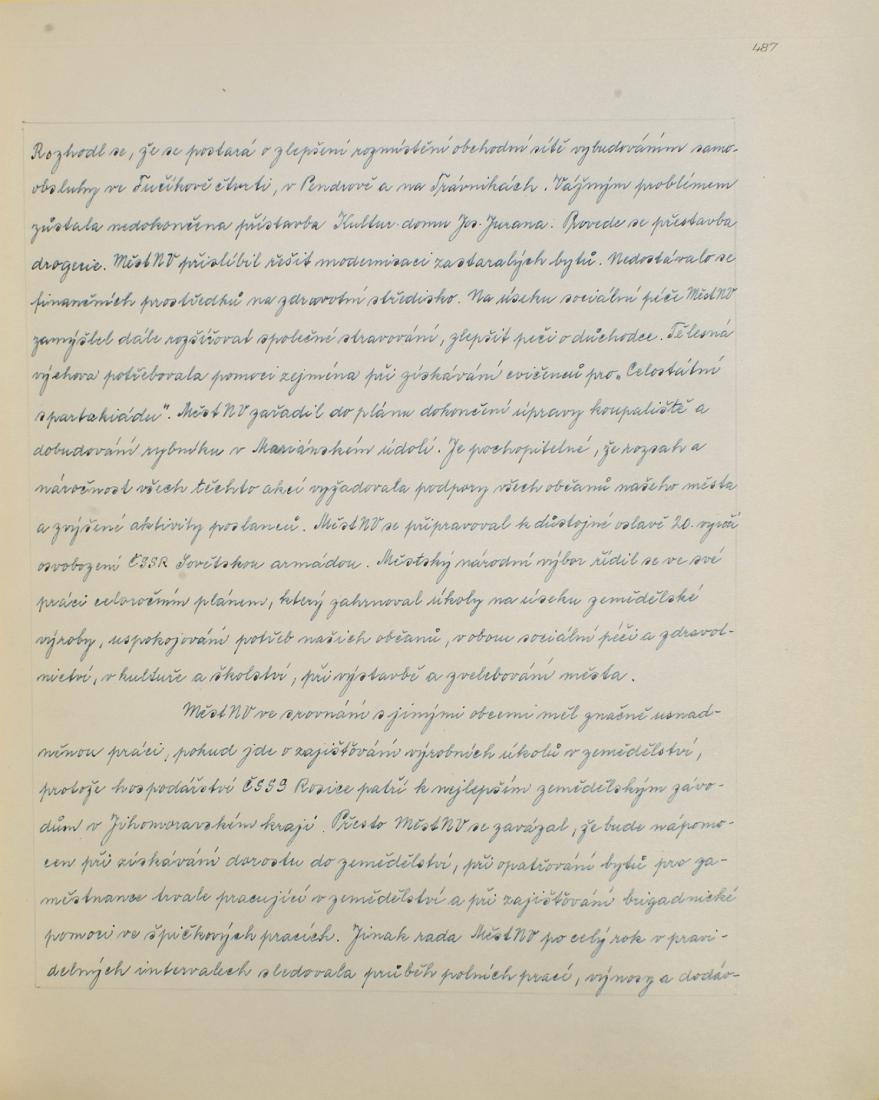 487
Rozhodl se, že se postará o zlepšení rozmístění obchodní sítě vybudováním samo-
obsluhy ve Fučíkově čtvrti, v Pendrově a na Trávníkách. Vážným problémem
zůstala nedokončena přístavba Kultur. domu Jos. Jurana. Provede se přestavba
drogerie. MěstNV přislíbil řešit modernisaci zastaralých bytů. Nedostávalo se
finančních prostředků na zdravotní středisko. Na úseku sociální péče MěstNV
zamýšlel dále rozšiřovat společné stravování, zlepšit peči o důchodce. Tělesná
výchova potřebovala pomoci zejména při získávání cvičenců pro „Celostátní
spartakiádu". MěstNV zařadil do plánu dokončení úpravy koupaliště a
dobudování rybníku v Mariánském údolí. Je pochopitelné, že rozsah a
náročnost všech těchto akcí vyžadovala podpory všech občanů našeho města
a zvýšené aktivity poslanců. MěstNV se připravoval k důstojné oslavě 20. výročí
osvobození ČSSR Sovětskou armádou. Městský národní výbor řídil se ve své
práci celoročním plánem, který zahrnoval úkoly na úseku zemědělské
výroby, uspokojování potřeb našich občanů, v obou sociální péči a zdravot-
nictví, v kultuře a školství, při výstavbě a zvelebování města.
MěstNV ve srovnání s jinými obcemi měl značně usnad-
něnou práci, pokud jde o zajišťování výrobních úkolů v zemědělství,
protože hospodářství ČSSS Rosice patří k nejlepším zemědělským závo-
dům v Jihomoravském kraji. Přesto MěstNV se zavázal, že bude nápomo-
cen při získávání dorostu do zemědělství, při opatřování bytů pro za-
městnance trvale pracující v zemědělství a při zajišťování brigadnické
pomoci ve špičkových pracích. Jinak rada MěstNV po celý rok v pravi-
delných intervalech sledovala průběh polních prací, výnosy a dodáv-